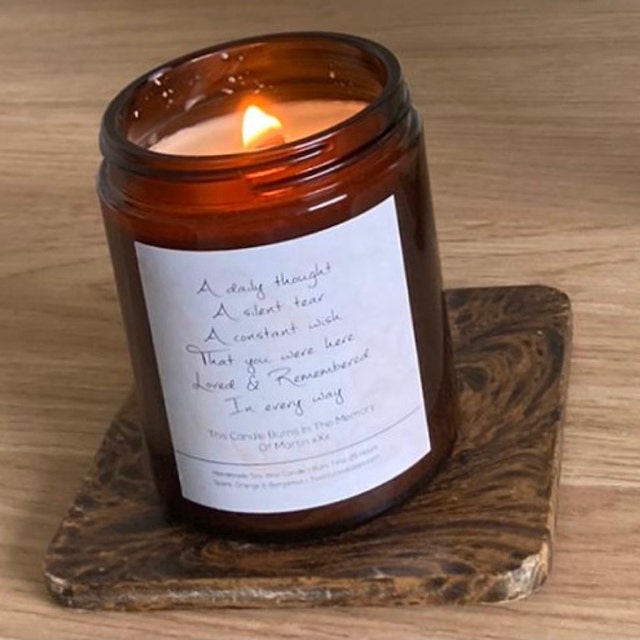 A daily thought
A silent tear
A constant wish
That you were here
Loved & Remembered
In every way
This Candle Burns In The Memory
Of Martin xXx
Handmade Soy Wax Candle | Burn Time
Orange & Bergamot